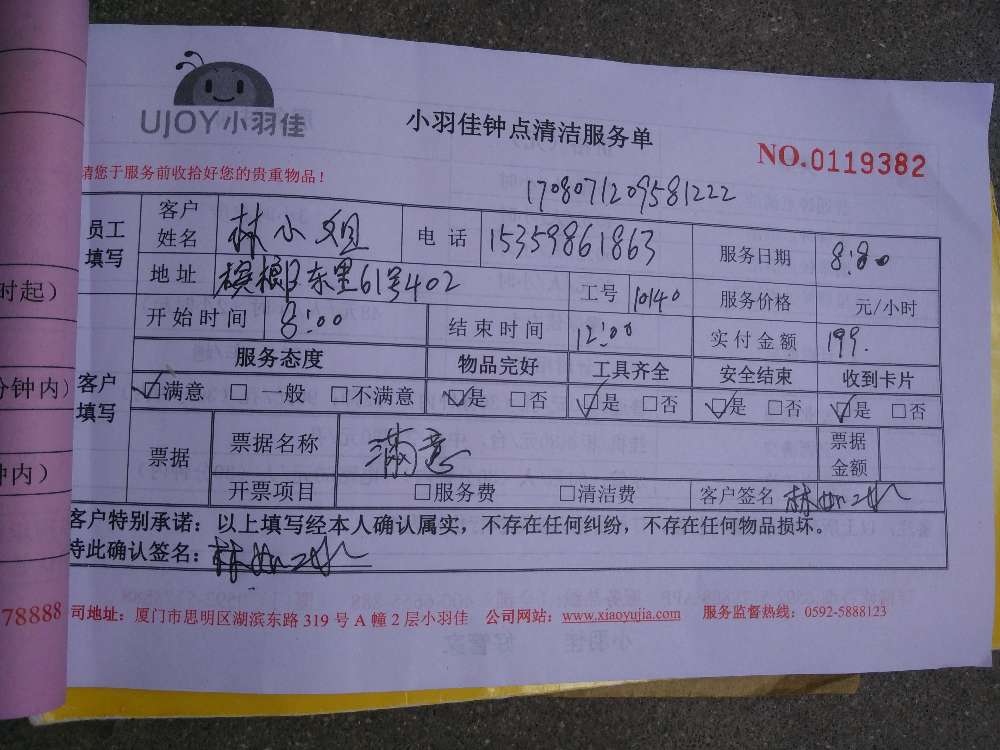 UJOY小羽佳
小羽佳钟点清洁服务单
NO.0119382
请您于服务前收拾好您的贵重物品！
1708071209581222
员工填写 客户姓名 林小姐 电话 15359861863 服务日期 8:80
地址 槟榔东里61号402 工号 10140 服务价格 元/小时
开始时间 8:00 结束时间 12:00 实付金额 199.
客户填写 服务态度 物品完好 工具齐全 安全结束 收到卡片
☑满意 □一般 □不满意 ☑是 □否 ☑是 □否 ☑是 □否 ☑是 □否
票据 票据名称 满意 票据金额
开票项目 □服务费 □清洁费 客户签名 林
客户特别承诺：以上填写经本人确认属实，不存在任何纠纷，不存在任何物品损坏。
特此确认签名：林
司地址：厦门市思明区湖滨东路 319 号 A 幢 2 层小羽佳 公司网站：www.xiaoyujia.com 服务监督热线：0592-5888123
时起）
分钟内）
钟内）
78888